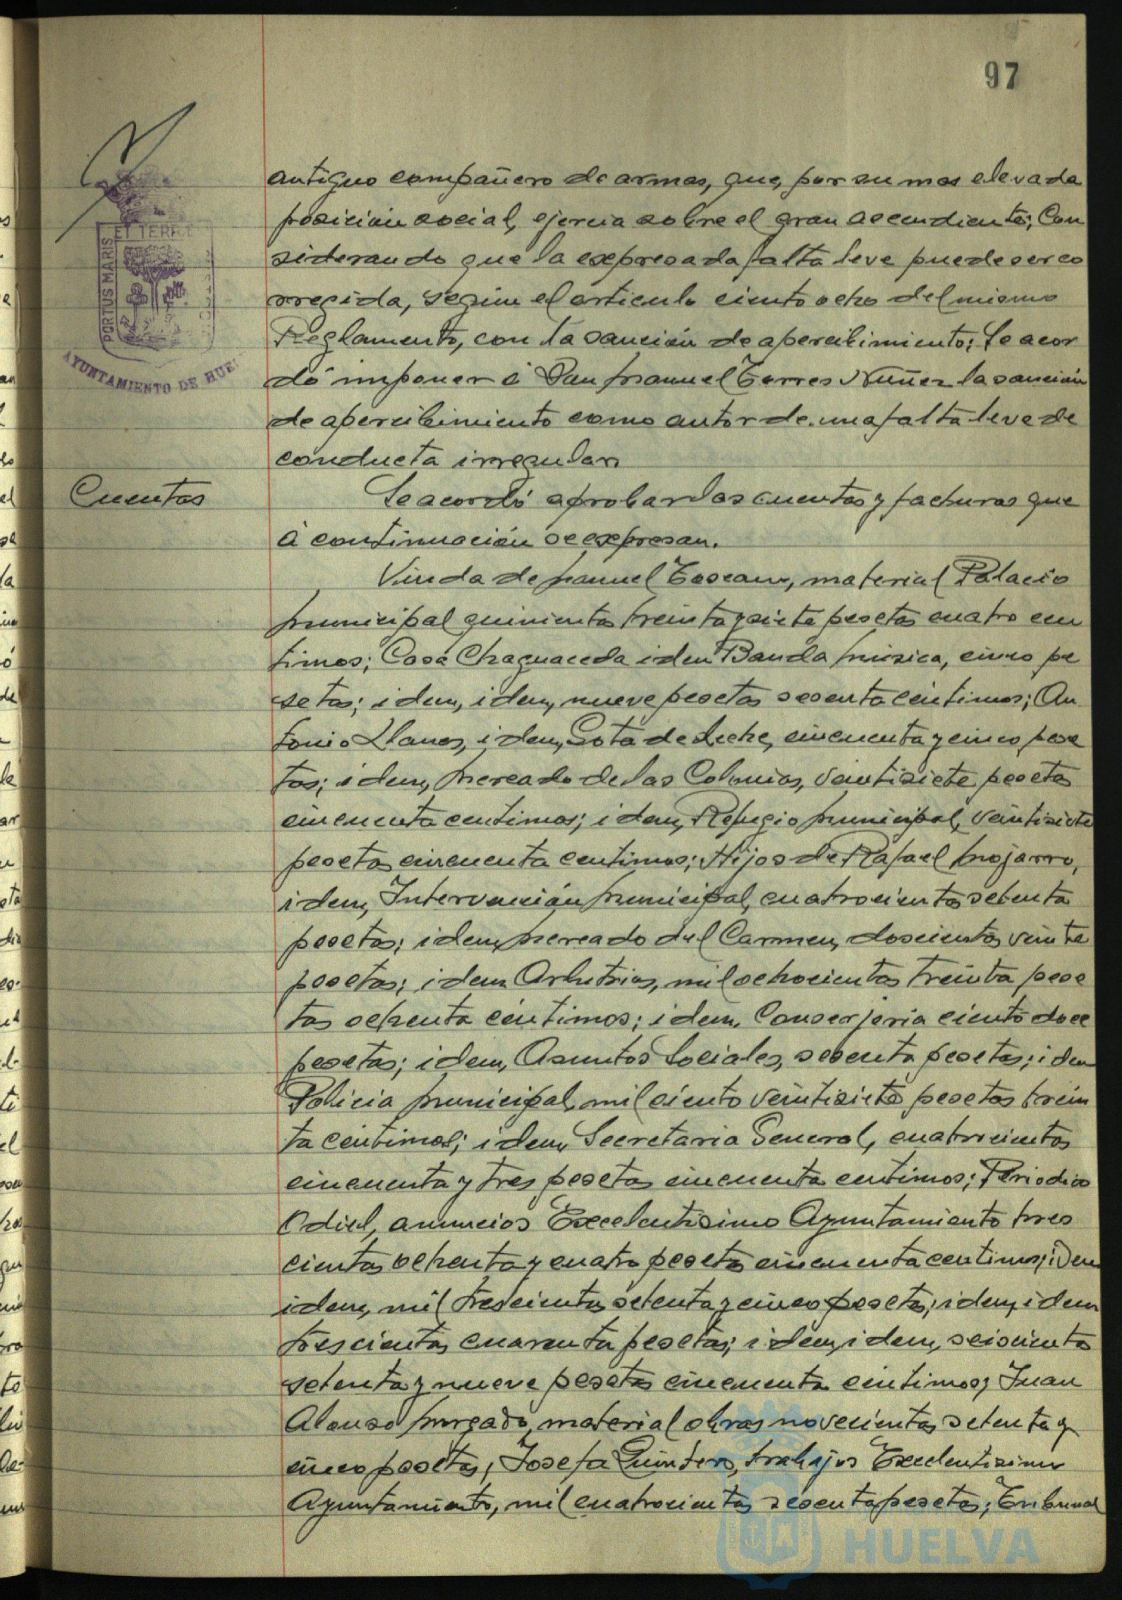 97
antiguo compañero de armas, que, por su mas elevada
posición social, ejercia sobre el gran ascendiente; Con
siderando que la expresada falta leve puede ser co
rregida, según el articulo ciento ocho del mismo
Reglamento, con la sanción de apercibimiento; Se acor
dó imponer á Don Manuel Torres Nuñez la sanción
de apercibimiento como autor de una falta leve de
conducta irregular.
Cuentas
Se acordó aprobar las cuentas y facturas que
á continuación se expresan.
Viuda de Manuel Toscano, material Palacio
Municipal quinientas treinta y siete pesetas cuatro cen
timos; Casa Chaguaceda idem Banda Música, cinco pe
setas; idem, idem, nueve pesetas sesenta céntimos; An
tonio Llanes, idem, Gota de Leche, cincuenta y cinco pese
tas; idem, Mercado de las Colonias, veintisiete pesetas
cincuenta centimos; idem, Refugio Municipal, veintisiete
pesetas cincuenta centimos; Hijos de Rafael Mojarro,
idem, Intervención Municipal, cuatrocientas setenta
pesetas; idem, Mercado del Carmen, doscientas veinte
pesetas; idem Arbitrios, mil ochocientas treinta pese
tas ochenta céntimos; idem, Conserjeria ciento doce
pesetas; idem, Asuntos Sociales, sesenta pesetas; idem
Policia Municipal, mil ciento veintisiete pesetas trein
ta céntimos; idem, Secretaria General, cuatrocientas
cincuenta y tres pesetas cincuenta centimos; Periodico
Odiel, anuncios Excelentisimo Ayuntamiento tres
cientas ochenta y cuatro pesetas cincuenta centimos; idem
idem, mil trescientas setenta y cinco pesetas; idem, idem
trescientas cuarenta pesetas; idem, idem, seiscientas
setenta y nueve pesetas cincuenta céntimos; Juan
Alonso Morgado, material obras novecientas setenta y
cinco pesetas; Josefa Quintero, trabajos Excelentisimo
Ayuntamiento, mil cuatrocientas sesenta pesetas; Tribunal
PORTUS MARIS
ET TERRÆ
AYUNTAMIENTO DE HUE
HUELVA